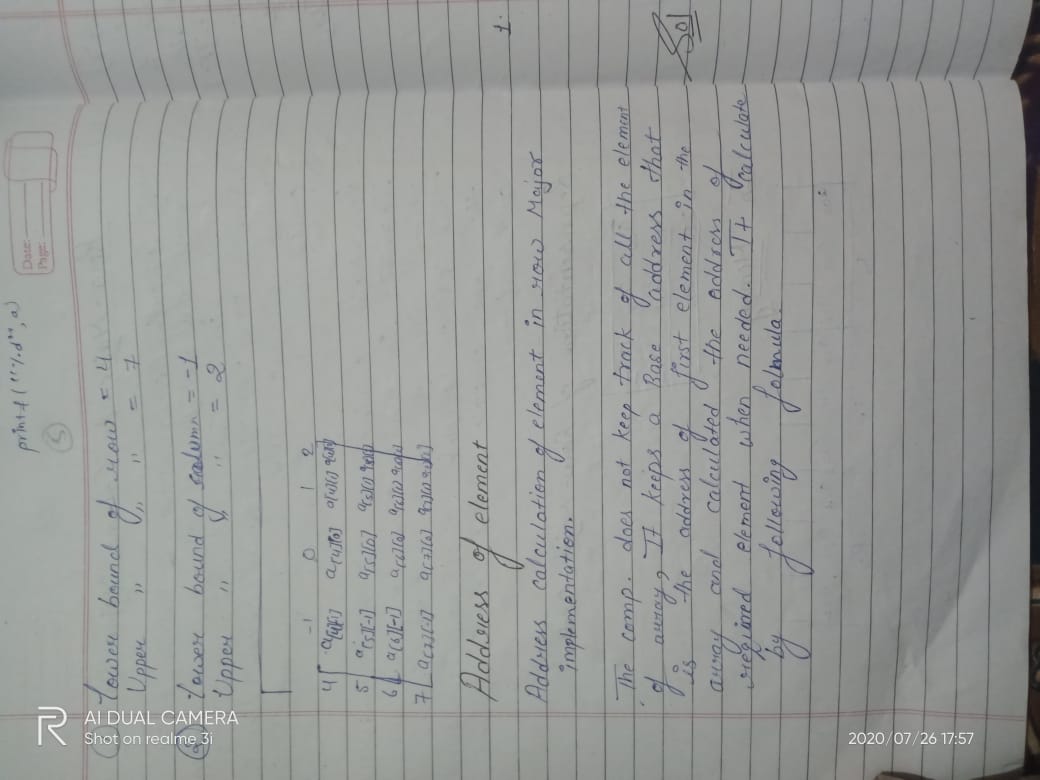 printf("%d", a)
5
Date:
Page:
1 Lower bound of row = 4
Upper " " = 7
2 Lower bound of column = -1
Upper " " = 2
-1 0 1 2
4 a[4][-1] a[4][0] a[4][1] a[4][2]
5 a[5][-1] a[5][0] a[5][1] a[5][2]
6 a[6][-1] a[6][0] a[6][1] a[6][2]
7 a[7][-1] a[7][0] a[7][1] a[7][2]
Address of element
Address calculation of element in row Major
implementation.
The comp. does not keep track of all the element
of array, It keeps a Base address that
is the address of first element in the
array and calculated the address of
required element when needed. It calculate
by following formula.
1.
Sol
AI DUAL CAMERA
Shot on realme 3i
2020/07/26 17:57